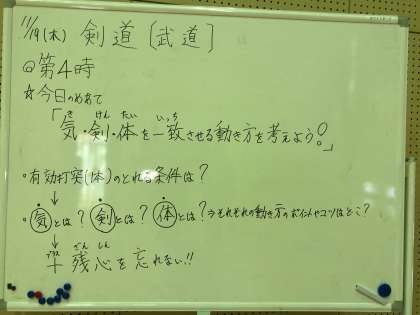 11/19(木) 剣道〔武道〕
◎第4時
☆今日のめあて
き けん たい いっち
「気・剣・体を一致させる動き方を考えよう!」
・有効打突(本)のとれる条件は?
↓
・気とは? 剣とは? 体とは? ⇒それぞれの動き方のポイントやコツはどこ?
↓
プラス ざん しん
+ 残心を忘れない!!